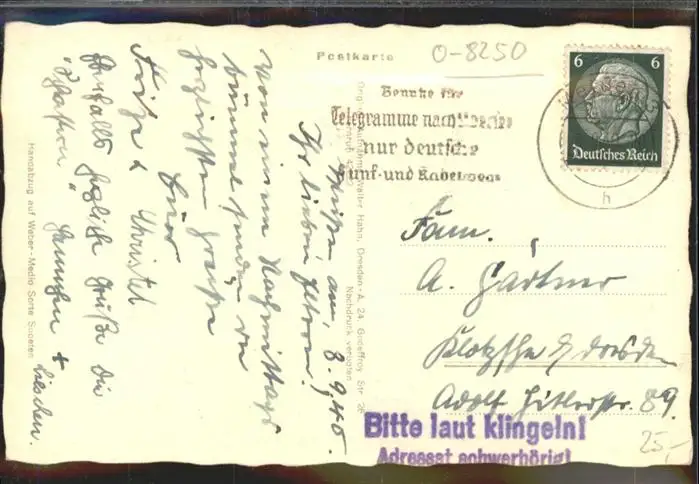 Postkarte
O-8250
6 6
Deutsches Reich
Benutze für
Telegramme nach Übersee
nur deutsche
Funk- und Kabelwege
h
Fam.
A. Gärtner
Klotzsche b/ Dresden
Adolf Hitlerstr. 89
25,-
Bitte laut klingeln!
Adressat schwerhörig!
Meißen am, 8.9.40.
Ihr lieben Eltern!
Von einem Nachmittags
bummel senden wir
herzlichsten Grüße
Euer
Fritz & Christel
Ebenfalls herzliche Grüße die
"
" + Lieschen.
Walter Hahn, Dresden-A. 24,
Str. 26
Nachdruck verboten
Handabzug auf Weber-Medio Sorte Sudeten